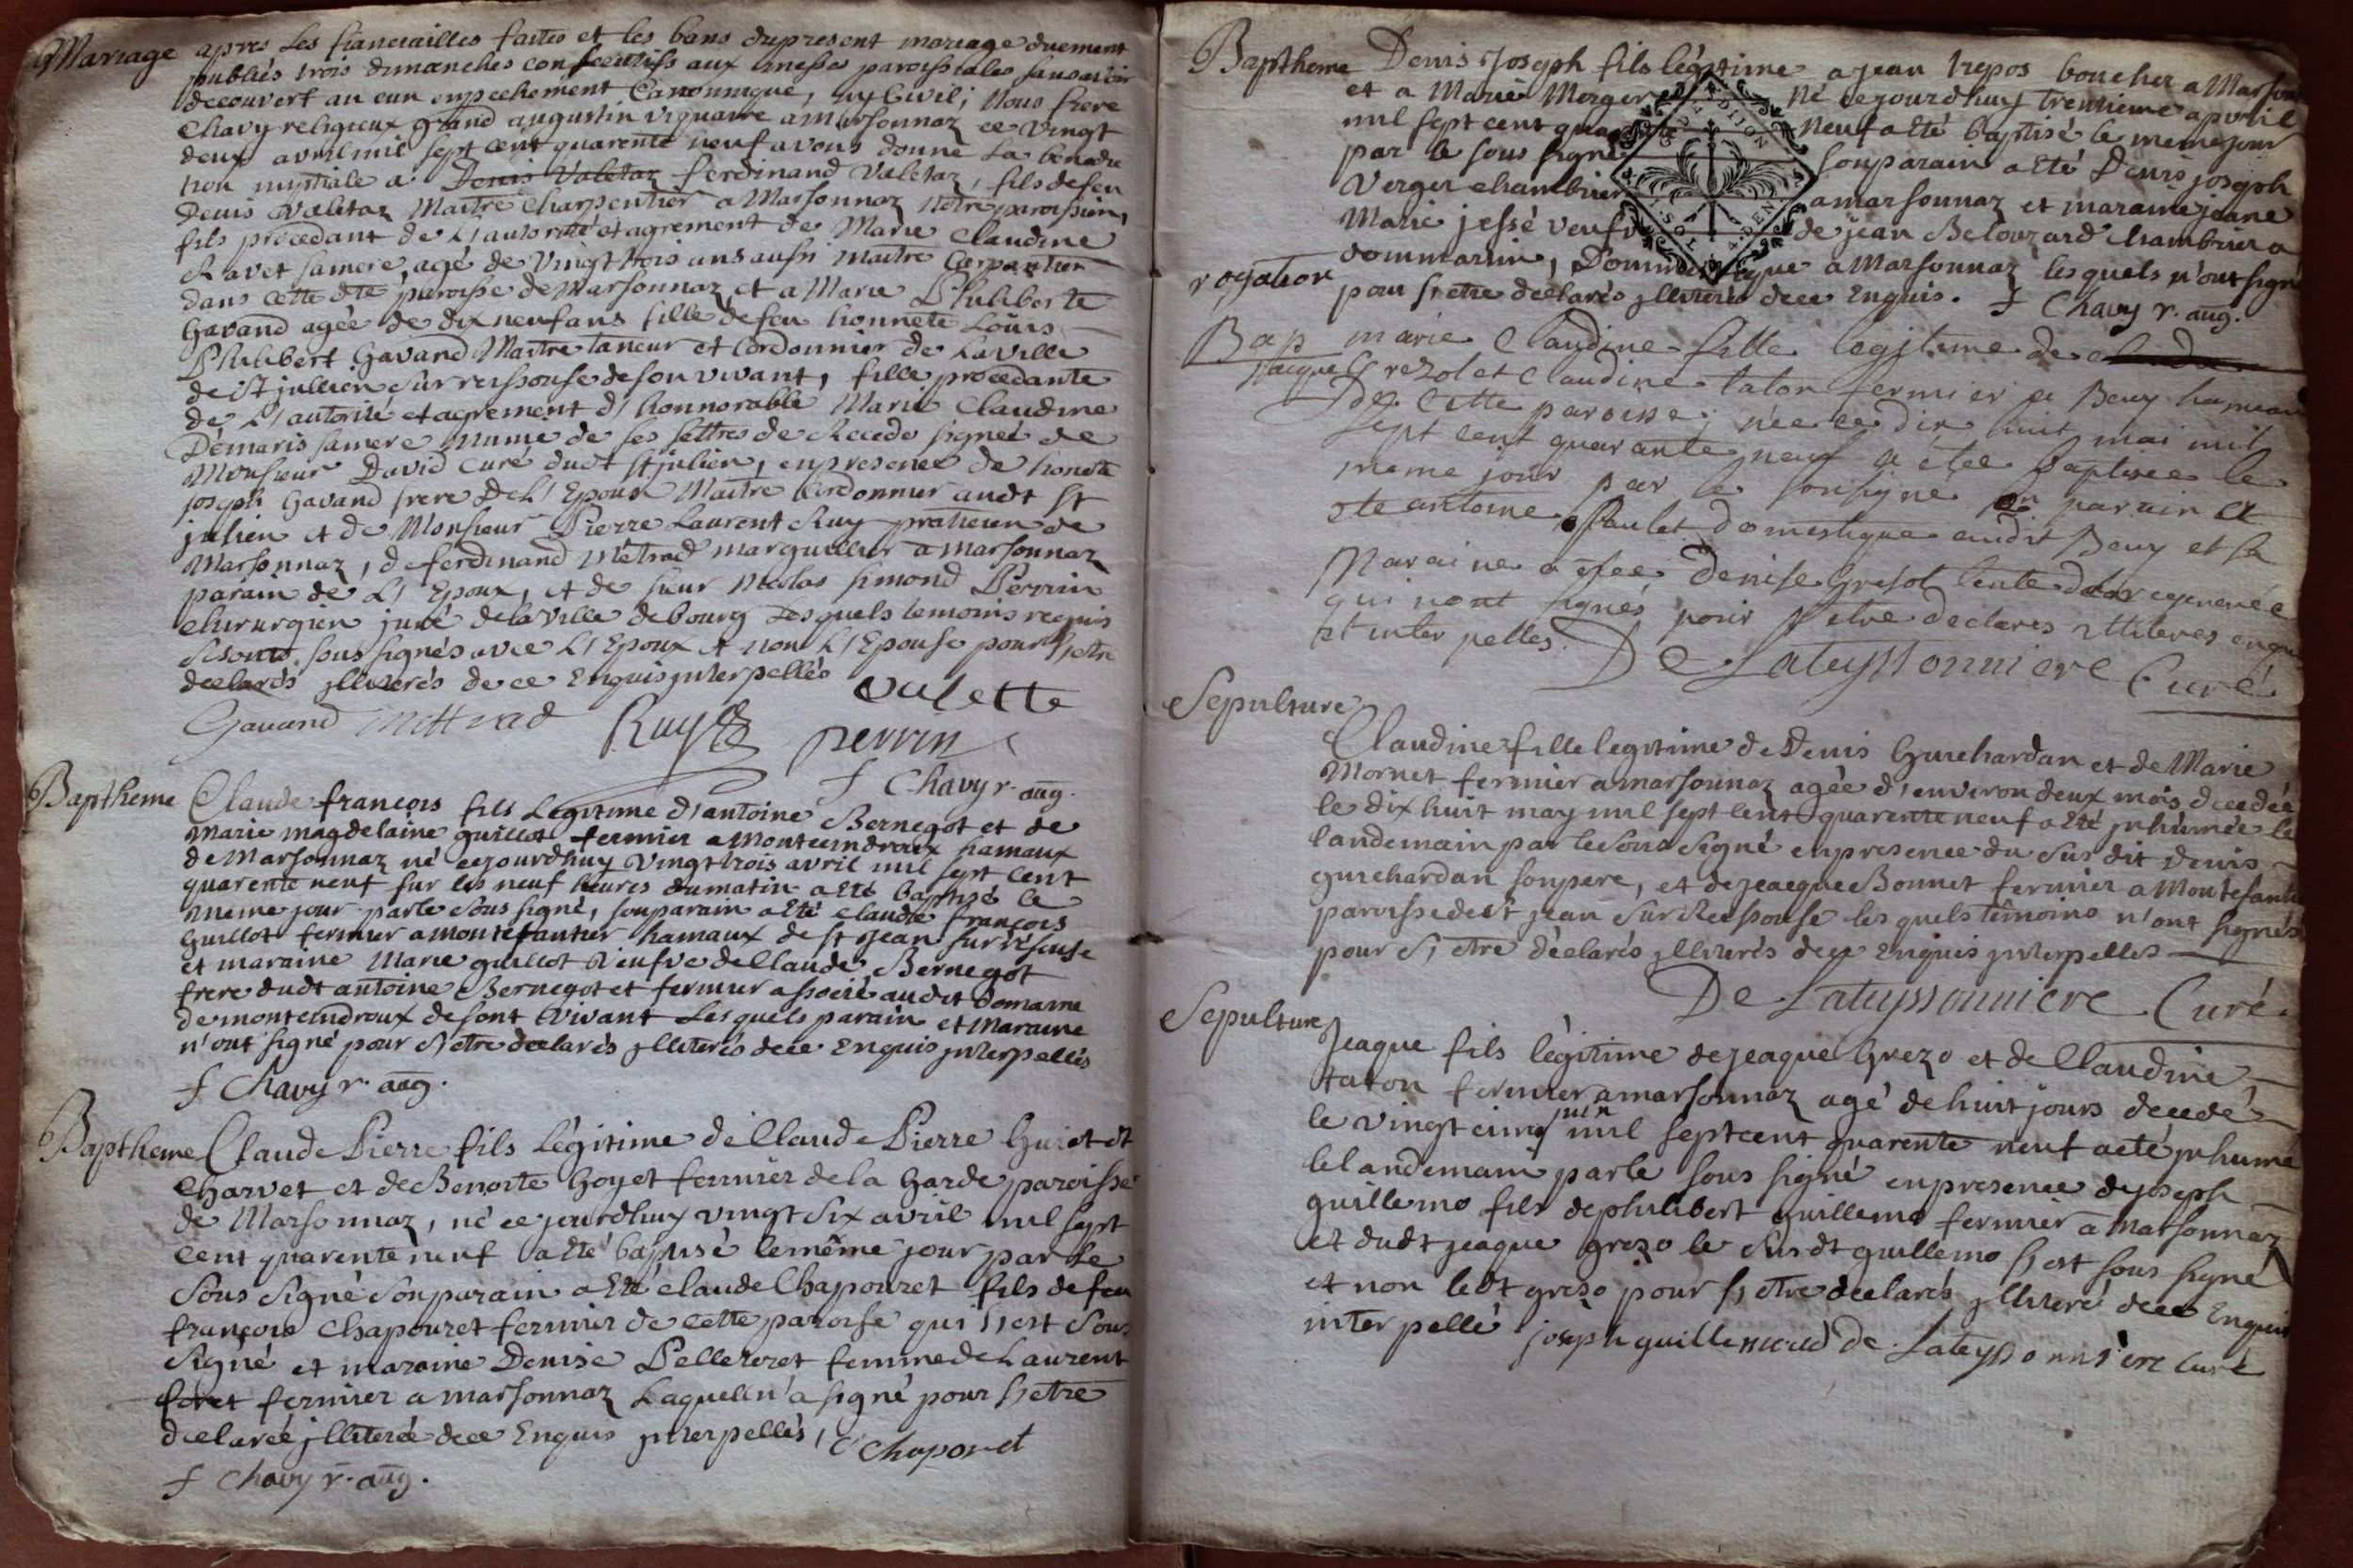 Mariage
apres les fiancailles faites et les bans dupresent mariage duement
publiés trois dimanches consecutifs aux messe paroissiales sans avoir
decouvert au cun enpechement Canonnique, ny Civil; Nous frere
Chavy religieux grand augustin viquaire a Marsonnaz ce vingt
deux avril mil sept cent quarente neuf avons donné la benedic
tion nuptiale a Denis Valetaz ferdinand Valetaz, fils defeu
Denis Valetaz Maitre Charpentier a Marsonnaz notre paroissien,
fils procedant de L'autorité et agrement de Marie Claudine
Ravet samere, agé de vingt trois ans aussi maitre Carpentier
dans cette dte paroisse de Marsonnaz, et a Marie Philiberte
Gavand agée de dix neuf ans fille defeu honnete Loüis
Philibert Gavand Maitre taneur et Cordonnier de la ville
de St jullien sur reissouse deson vivant, fille procedante
de L'autorité et agrement d'honnorable Marie Claudine
Demaris samere Munie de ses lettres de Recede signée de
Monsieur David Curé dudt St julien, enpresence de honete
joseph Gavand frere De L'Epouse Maitre Cordonnier audt St
julien et de Monsieur Pierre Laurent Ruy praticien de
Marsonnaz, de ferdinand Métrad marguillier a Marsonnaz
parain de L'Epoux, et de sieur Nicolas simond Perrin
chirurgien juré dela ville debourg Lesquels temoins requis
sesonts sous signés avec L'Epoux et non L'Epouse pour s'etre
declarés jlliterés de ce Enquis jnterpellés
valette
Gavand mettrad Ruy perrin
f Chavy r. aug.
Baptheme
Claude francois fils Legitime d'antoine Bernegot et de
Marie magdelaine guillot fermier a Monteindroux hamaux
de Marsonnaz né cejourdhuy vingt trois avril mil sept cent
quarente neuf sur les neuf heures dumatin a eté baptisé le
meme jour parle sous signé, sonparain a eté claude françois
Guillot fermier amontefantier hamaux de st Jean sur réssouse
et maraine Marie guillot veufve declaude Bernegot
frere dudt antoine Bernegot et fermier associé audit domaine
demonteindroux desont vivant Lesquels parain et Maraine
n'ont signé pour s'etre declarés jlliterés dece Enquis jnterpellés
f Chavy r. aug.
Baptheme
Claude Pierre fils Légitime de Claude Pierre Guiot dt
Charvet et de Benoite Goyet fermier dela Garde paroisse
de Marsonnaz, né cejourdhuy vingt six avril mil sept
cent quarente neuf a eté baptisé lemême jour par Le
sous signé sonparain a eté claude Chapouret fils defeu
françois Chapouret fermier de cette paroisse qui s'est sous
signé et maraine Denise Pelleteret femme de Laurent
foret fermier a marsonnaz Laquelle n'a signé pour s'etre
declarée jlliterée dece Enquis jnterpellés, C Chaporet
f Chavy r. aug.
Baptheme
Denis Joseph fils légitime a jean trepos boucher a Marson
et a Marie Morger né cejourdhuy trentieme apvril
mil sept cent quarente neuf a eté baptisé le meme jour
par le sous signé sonparain a eté Denis joseph
Verger chambrier amarsonnaz et maraine jeane
Marie jessé veufve de jean Belouzard chambrier a
dommartin, Domestique a Marsonnaz lesquels n'ont signé
pour s'etre declarés jlliterés dece Enquis. f Chavy r. aug.
rogation
Bap
marie Claudine fille legitime de
jacque Grezol et claudine taton fermier a Beuy hameau
de Cette paroisse; née le dix huit mai mil
sept cent quarante neuf a étée baptisée le
meme jour par le soussigné son parain a
été antoine Paulet domestique audit Beuy et sa
Maraine a étée Denise Gresol tente de la regenerée
qui nont signés pour s'etre declares illiteres enquis
et interpelles. De Lateyssonniere Curé
Sepulture
Claudine fille legitime de Denis Guichardan et de Marie
Mornet fermier amarsonnaz agée d'environ deux mois decedée
le dix huit may mil sept cent quarente neuf a eté jnhumée le
landemain par le sous signé enpresence du sus dit Denis
guichardan sonpere, et dejeacque Bonnet fermier a Montefantier
paroissedest jean sur Reissouse les quels témoins n'ont signés
pour s'etre déclarés jlliterés dece Enquis jnterpelles
De Lateyssonniere Curé
Sepulture
Jeaque fils légitime dejeaque Grezo et de Claudine
taton fermier amarsonnaz agé dehuit jours decedé
le vingt cinq juin mil septcent quarente neuf aeté jnhumé
lelandemain parle sous signé enpresence dejoseph
guillemo fils dephilibert guillemo fermier a Marsonnaz
et dudt jeaque grezo le susdt guillemo s'est sous signé
et non ledt grezo pour s'etre declarés jlliteré dece Enquis
interpellé joseph guillemaud De Lateyssonniere curé